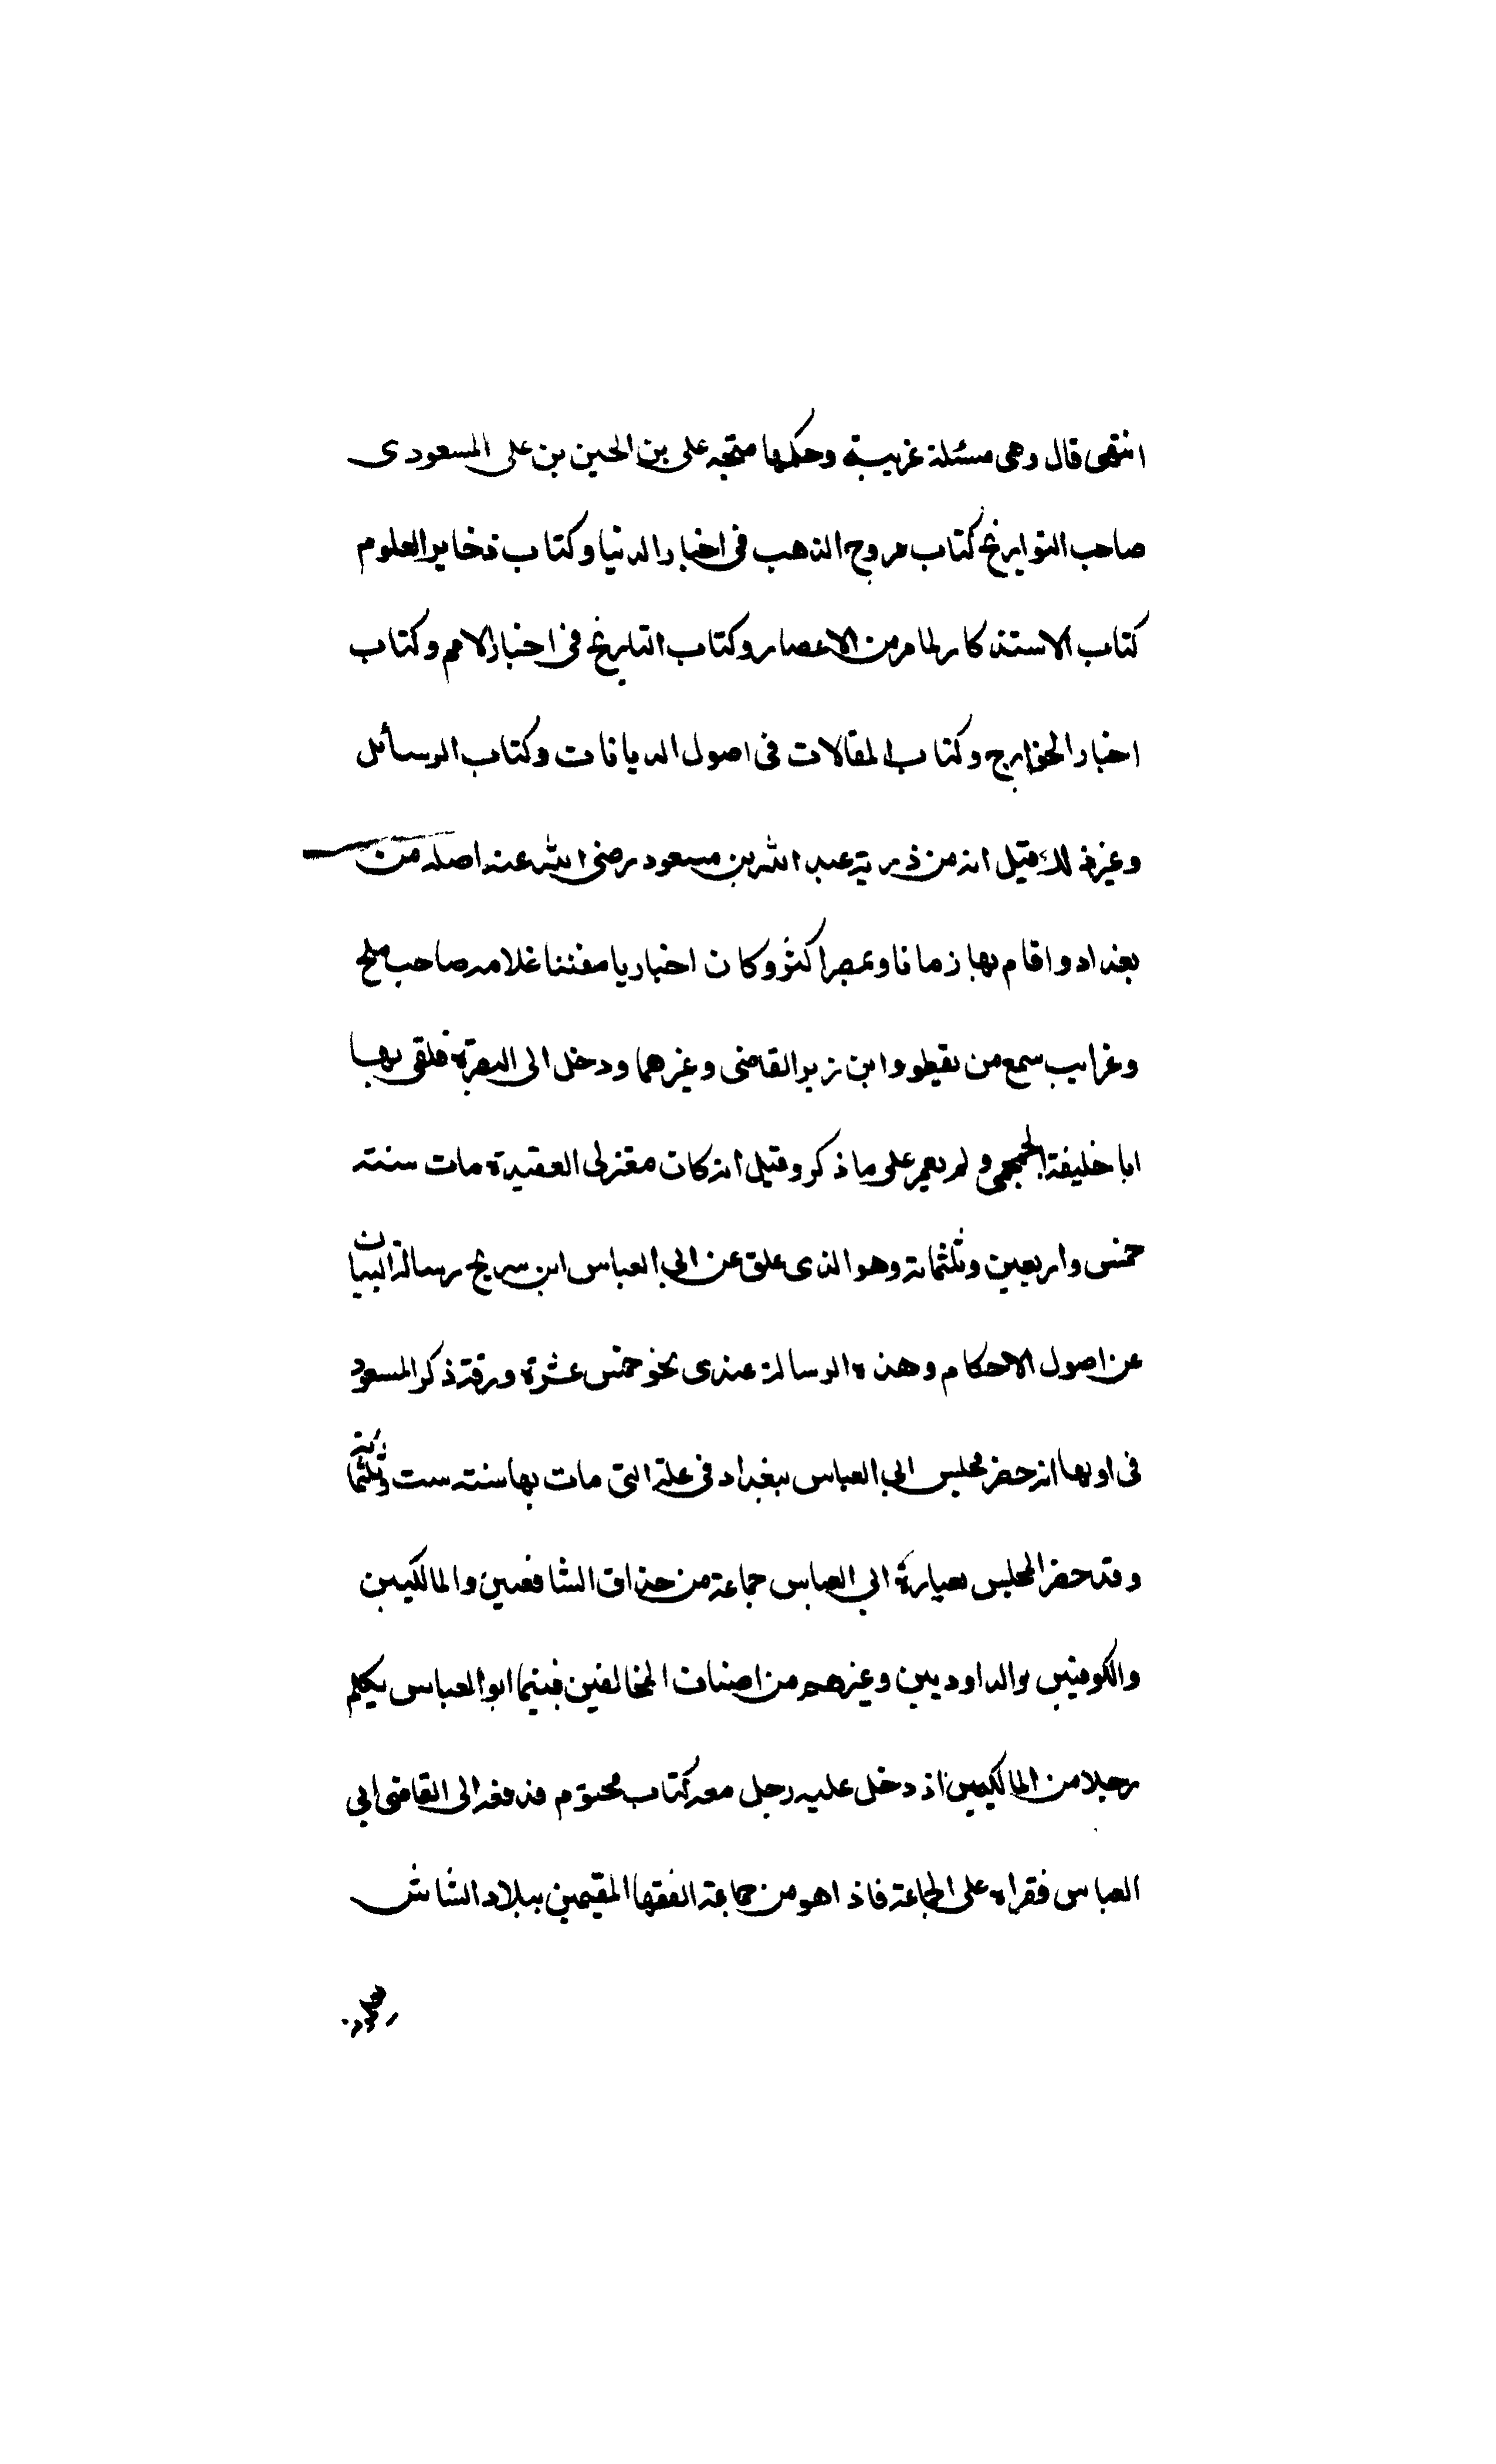 انتهى قال وهى مسئلة غريبة وحكمها متجه على بن الحسين بن على المسعودى
صاحب التواريخ كتاب مروج الذهب فى اخبار الدنيا وكتاب ذخاير العلوم
كتاب الاستذكار لما مر من الاعصار وكتاب التاريخ فى اخبار الامم وكتاب
اخبار الخوارج وكتاب المقالات فى اصول الديانات وكتاب الرسائل
وغير ذلك قيل انه من ذرية عبد الله بن مسعود رضى الله عنه اصله من
بغداد واقام بها زمانا وبمصر اكثر وكان اخباريا مفننا علامه صاحب ملح
وغرايب سمع من نفيطو وابن زبر القاضى وغيرهما ودخل الى البصرة فلقى بها
ابا خليفة الجمحى ولم يعمر على ما ذكر وقيل انه كان معتزلى العقيدة مات سنة
خمس واربعين وثلثمائة وهو الذى علق عن ابى العباس ابن سريج رسالة البيان
عن اصول الاحكام وهذه الرسالة عندى نحو خمس عشرة ورقة ذكر المسعود
فى اولها انه حضر مجلس ابى العباس ببغداد فى علة التى مات بها سنة ست وثلثمائة
وقد حضر المجلس لعيادة ابى العباس جماعة من حذاق الشافعيين والمالكيين
والكوفيين والداوديين وغيرهم من اصناف المخالفين فبينما ابو العباس يكلم
رجلا من المالكيين اذ دخل عليه رجل معه كتاب مختوم فدفعه الى القاضى ابى
العباس فقراه على الجماعة فاذا هو من جماعة الفقها المقيمين ببلاد الشاش